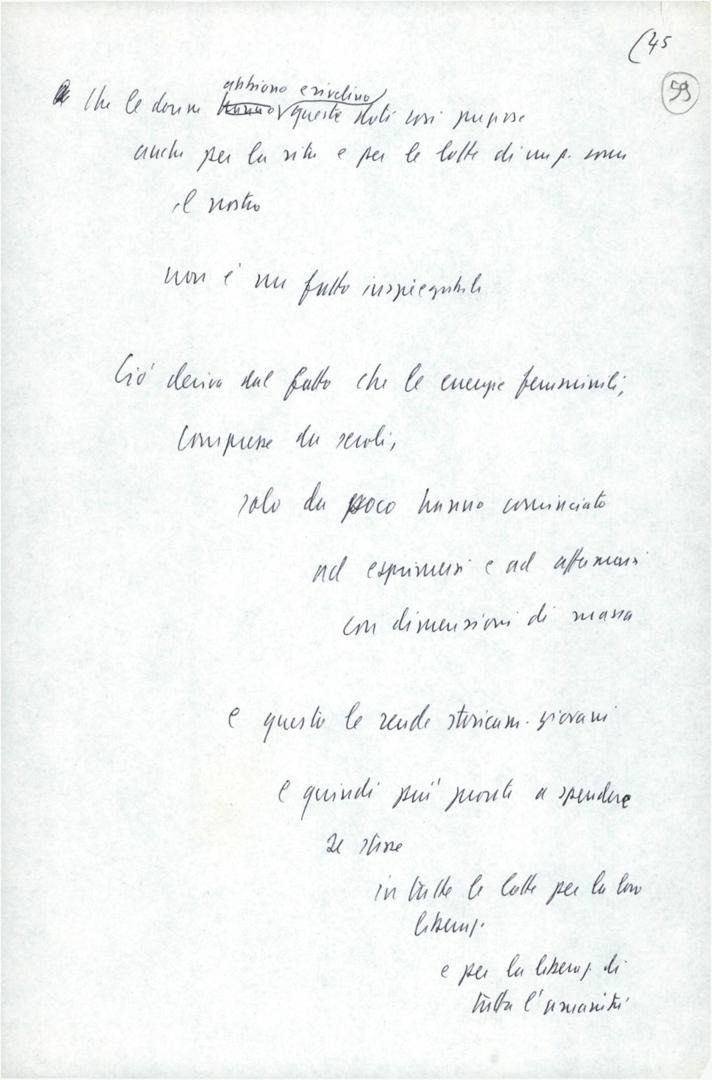 (45
59
abbiano e rivelino
Che le donne hanno queste doti così preziose
anche per la vita e per le lotte di un p. come
il nostro
non è un fatto inspiegabile
Ciò deriva dal fatto che le energie femminili,
compresse da secoli,
solo da poco hanno cominciato
ad esprimersi e ad affermarsi
con dimensioni di massa
e questo le rende storicam. giovani
e quindi più pronte a spendere
se stesse
in tutte le lotte per la loro
liberaz.
e per la liberaz. di
tutta l'umanità